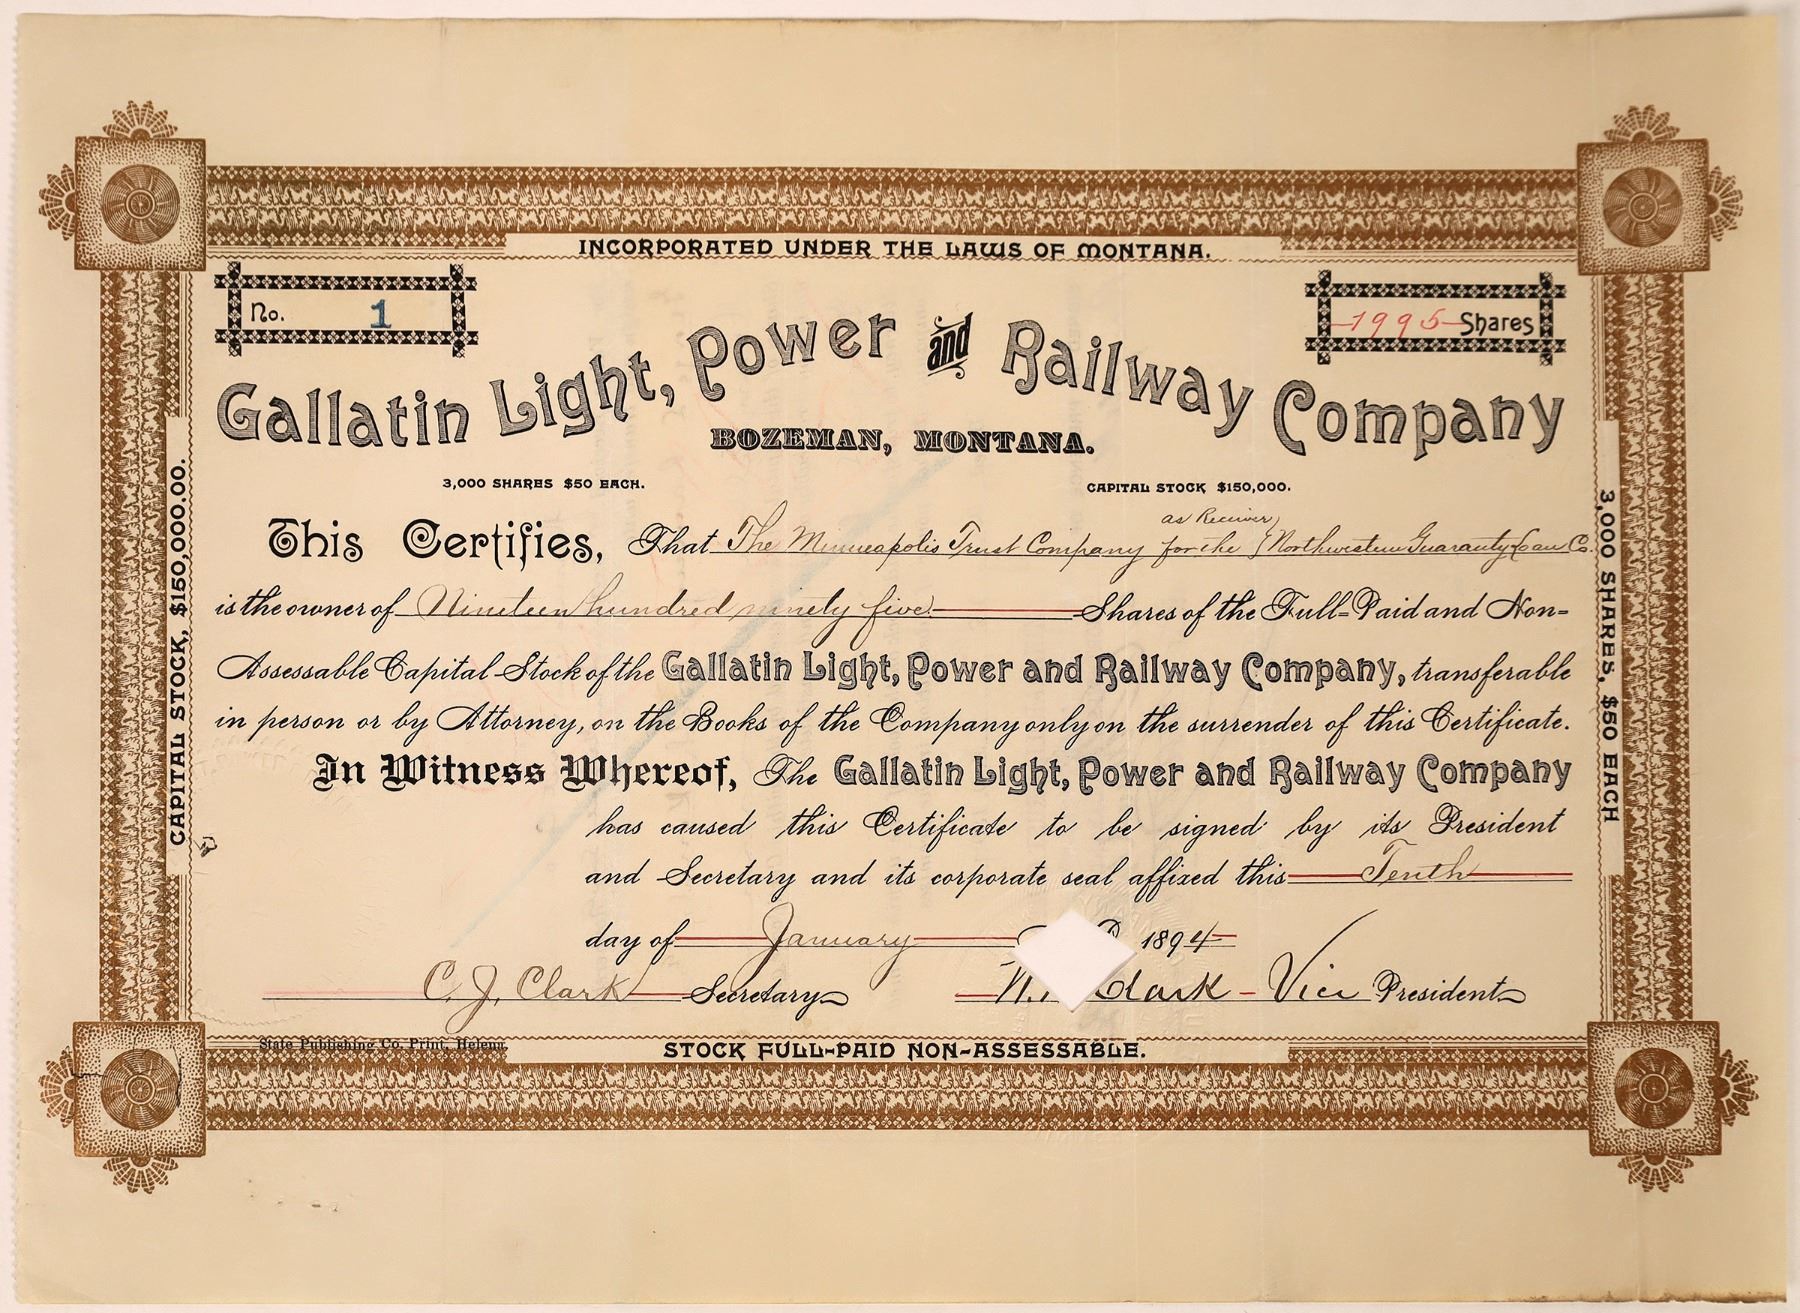 INCORPORATED UNDER THE LAWS OF MONTANA.
No. 1
1995 Shares
Gallatin Light, Power and Railway Company
BOZEMAN, MONTANA.
3,000 SHARES $50 EACH.
CAPITAL STOCK $150,000.
as Receiver
This Certifies, That The Minneapolis Trust Company for the Northwestern Guaranty Loan Co.
is the owner of Nineteen hundred ninety five Shares of the Full-Paid and Non-
Assessable Capital Stock of the Gallatin Light, Power and Railway Company, transferable
in person or by Attorney, on the Books of the Company only on the surrender of this Certificate.
In Witness Whereof, The Gallatin Light, Power and Railway Company
has caused this Certificate to be signed by its President
and Secretary and its corporate seal affixed this Tenth
day of January D. 1894
C. J. Clark Secretary
Clark - Vice President
State Publishing Co. Print, Helena.
STOCK FULL-PAID NON-ASSESSABLE.
CAPITAL STOCK, $150,000.00.
3,000 SHARES, $50 EACH